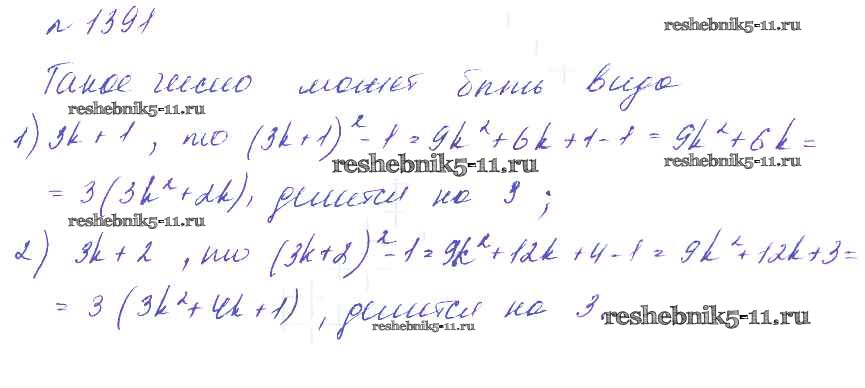 № 1391
reshebnik5-11.ru
Такое число может быть вида
reshebnik5-11.ru
1) 3k + 1, то (3k+1)² - 1 = 9k² + 6k + 1 - 1 = 9k² + 6k =
reshebnik5-11.ru
reshebnik5-11.ru
= 3(3k² + 2k), делится на 3;
reshebnik5-11.ru
2) 3k + 2, то (3k+2)² - 1 = 9k² + 12k + 4 - 1 = 9k² + 12k + 3 =
= 3(3k² + 4k + 1), делится на 3.
reshebnik5-11.ru
reshebnik5-11.ru